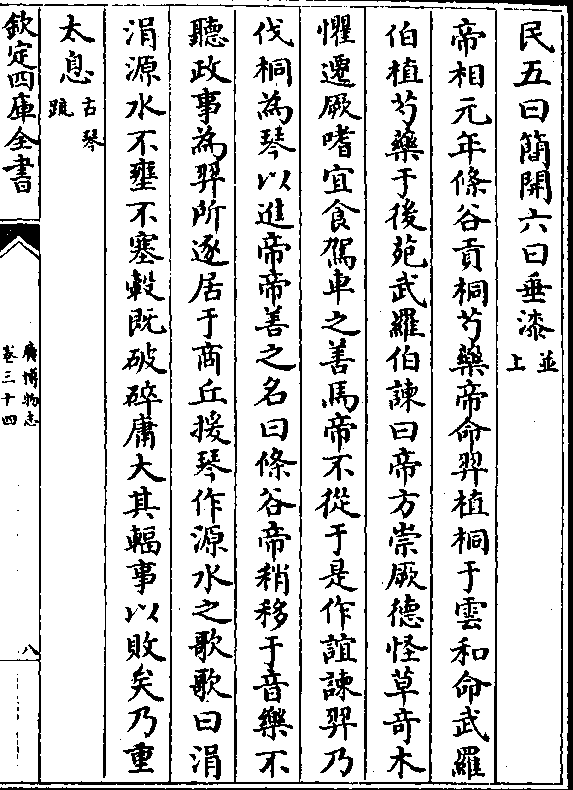 民五曰簡開六曰垂漆並上
帝相元年條谷貢桐芍藥帝命羿植桐于雲和命武羅
伯植芍藥于後苑武羅伯諫曰帝方崇厥德怪草奇木
懼遷厥嗜宜食駕車之善馬帝不從于是作誼諫羿乃
伐桐為琴以進帝帝善之名曰條谷帝稍移于音樂不
聽政事為羿所逐居于商丘援琴作源水之歌歌曰涓
涓源水不壅不塞轂既破碎庸大其輻事以敗矣乃重
太息古琴疏
欽定四庫全書
廣博物志
卷三十四
八